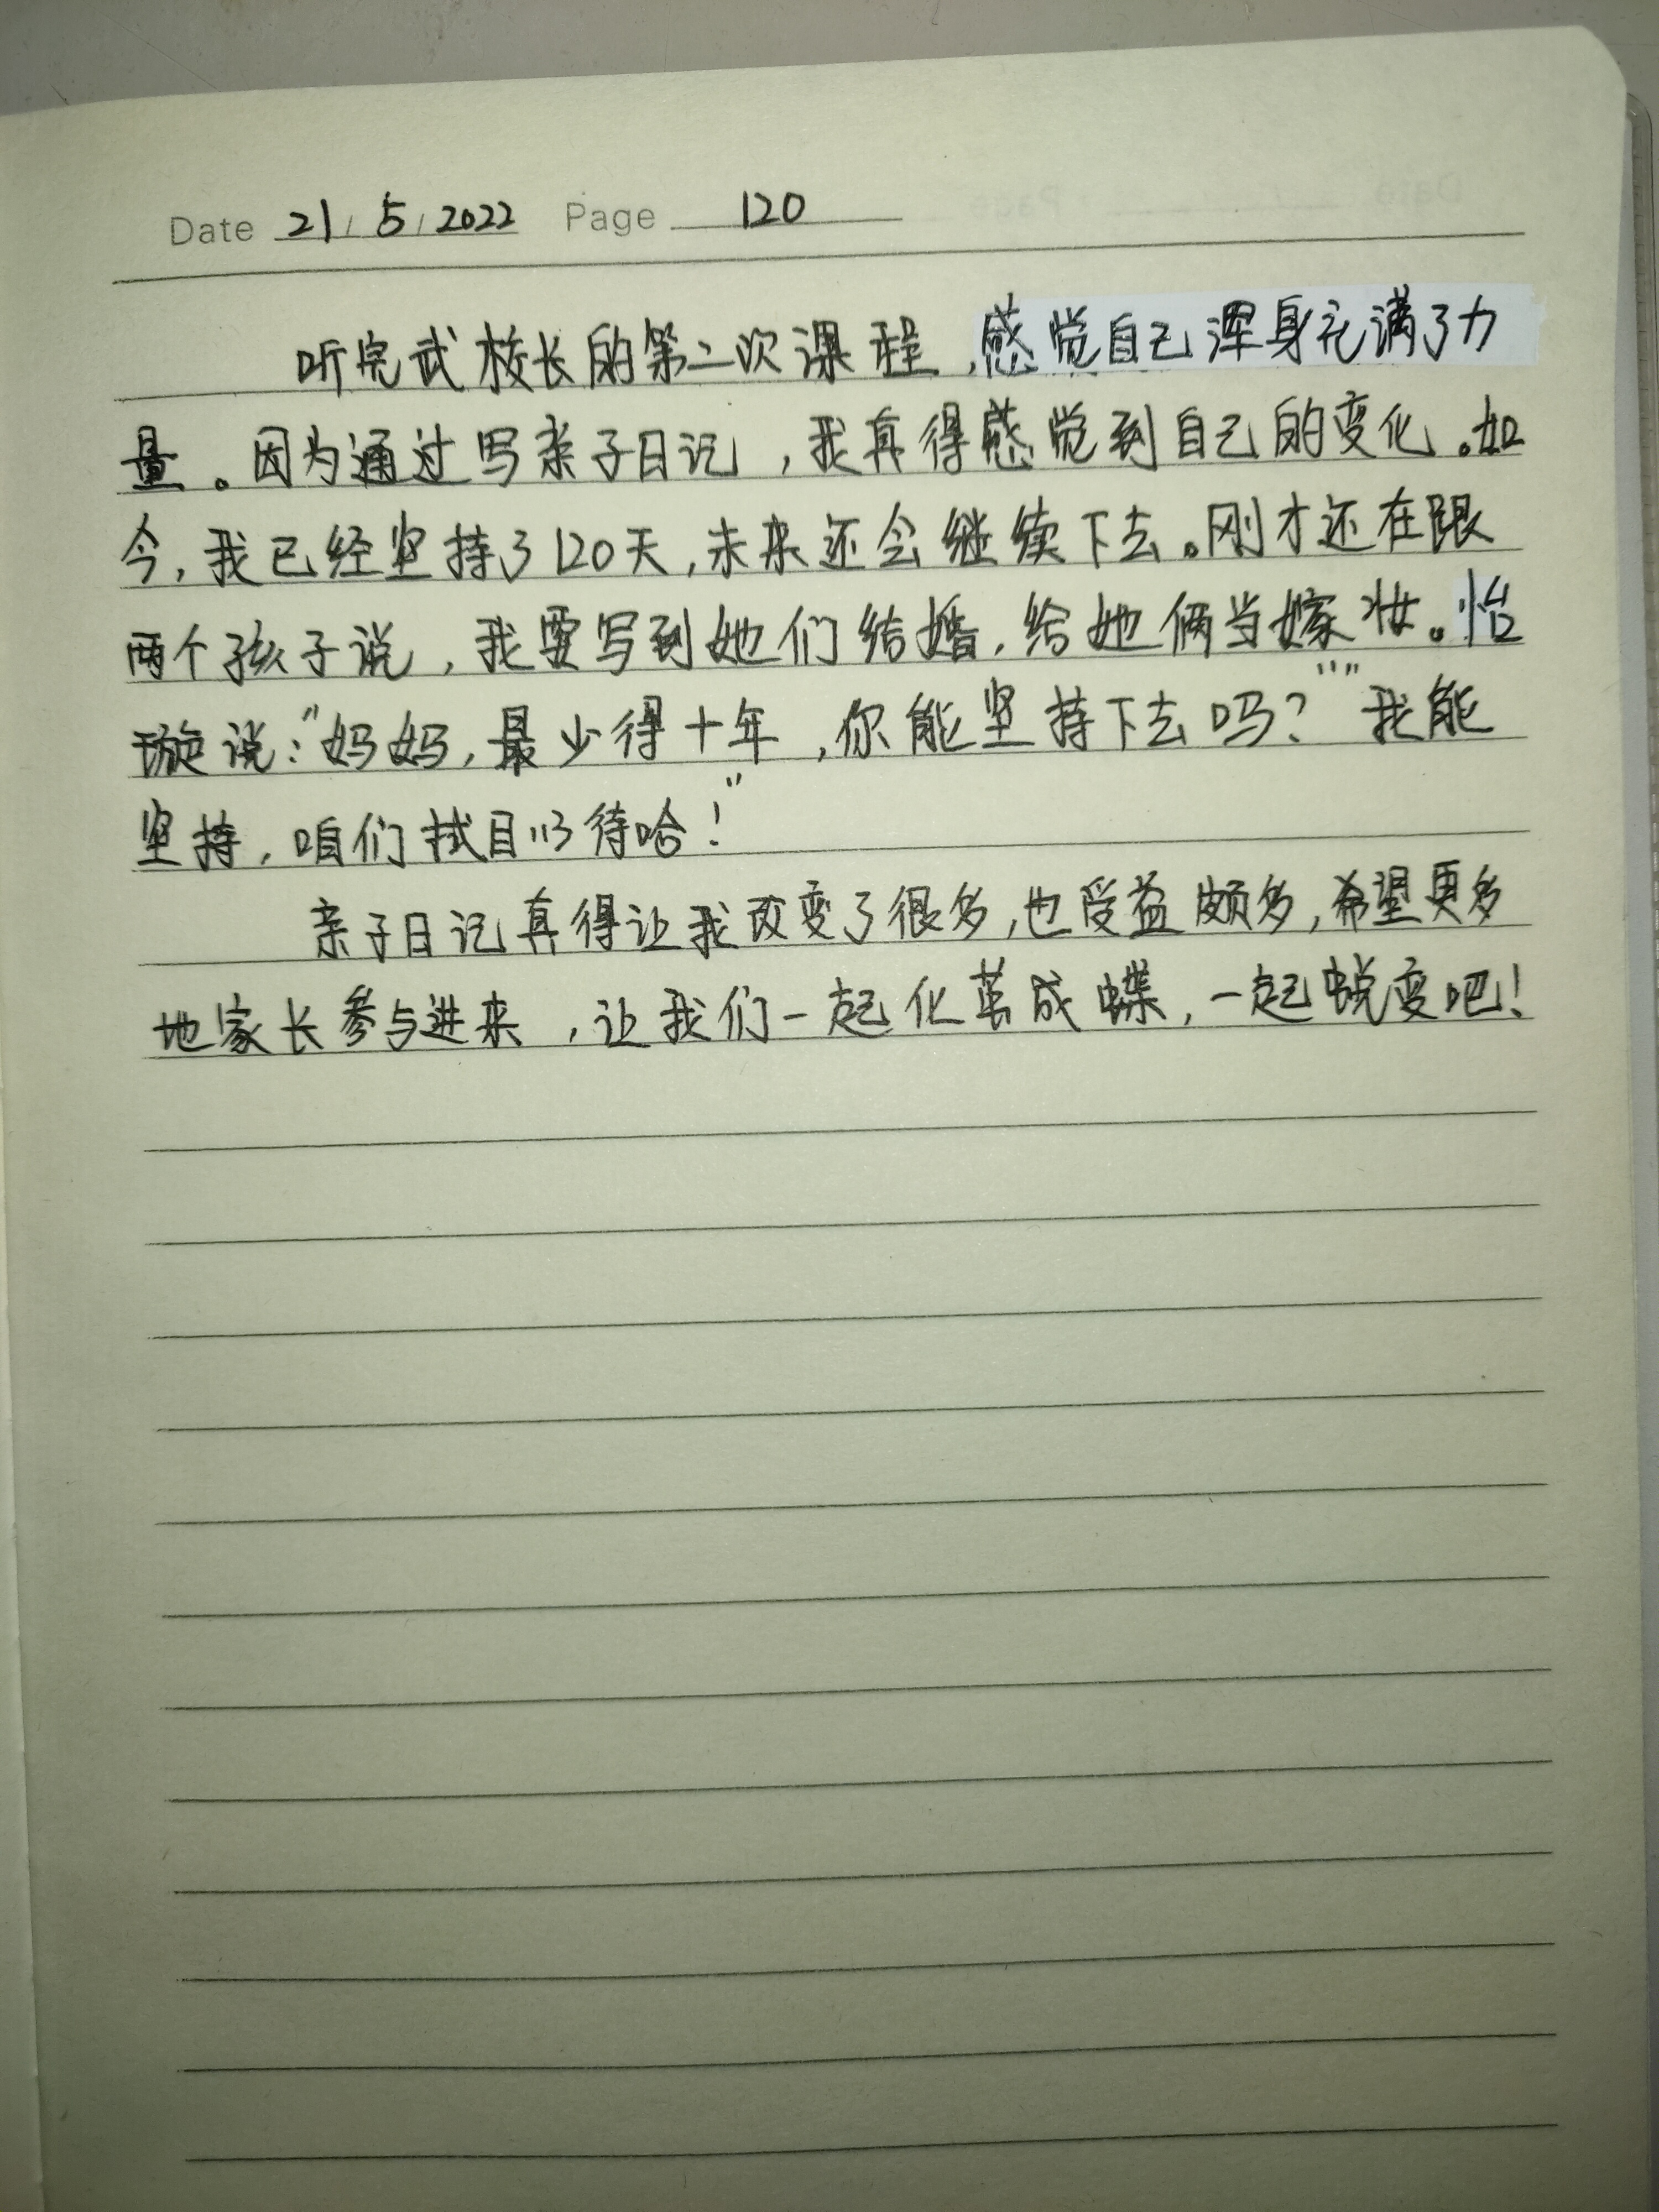 Date 21 / 5 / 2022 Page 120
听完武校长的第二次课程,感觉自己浑身充满了力
量。因为通过写亲子日记,我真得感觉到自己的变化。如
今,我已经坚持了120天,未来还会继续下去。刚才还在跟
两个孩子说,我要写到她们结婚,给她俩当嫁妆。怡
璇说:“妈妈,最少得十年,你能坚持下去吗?”“我能
坚持,咱们拭目以待哈!”
亲子日记真得让我改变了很多,也受益颇多,希望更多
地家长参与进来,让我们一起化茧成蝶,一起蜕变吧!